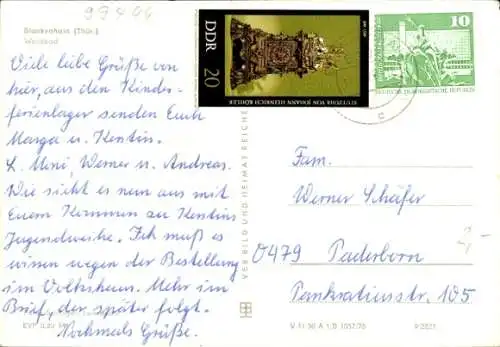 99406
Blankenhain (Thür.)
Waldbad
Viele liebe Grüße von
hier, aus dem Kinder-
ferienlager senden Euch
Marga u. Kerstin.
L. Mimi, Werner u. Andreas.
Wie sieht es nun aus mit
Eurem Kommen zu Kerstins
Jugendweihe. Ich muß es
wissen wegen der Bestellung
im Volkshaus. Mehr im
Brief, der später folgt.
Nochmals Grüße.
VEB BILD UND HEIMAT REICHENBACH
DDR 20
STUTZUHR VON JOHANN HEINRICH KÖHLER
10
DEUTSCHE DEMOKRATISCHE REPUBLIK
Fam.
Werner Schäfer
0479 Paderborn
Pankratiusstr. 105
2,-
V 11 50 A 1/B 1057/76
9 2821